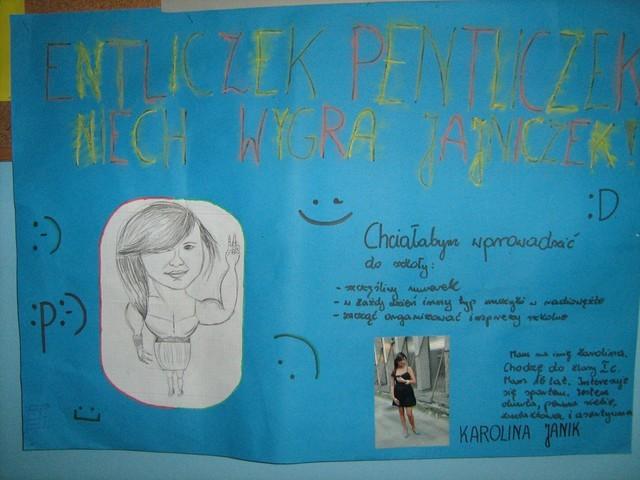 ENTLICZEK PENTLICZEK
NIECH WYGRA JAJNICZEK!
:-)
:D
:p :-)
Chciałabym wprowadzić
do szkoły:
- szczęśliwy numerek
- w każdy dzień inny typ muzyki w radiowęźle
- zacząć organizować imprezy szkolne
Mam na imię Karolina.
Chodzę do klasy I c.
Mam 16 lat. Interesuję
się sportem. Jestem
otwarta, pewna siebie,
i asertywna
KAROLINA JANIK